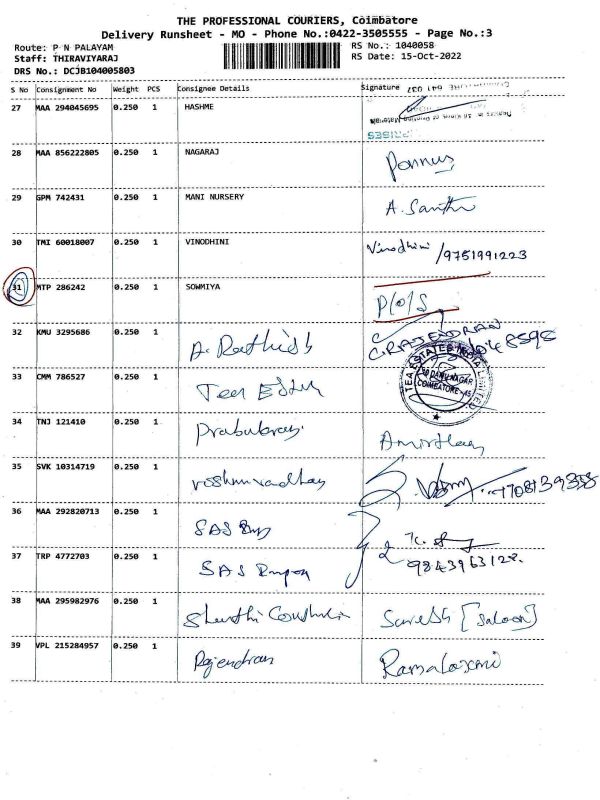 THE PROFESSIONAL COURIERS, Coimbatore
Delivery Runsheet - MO - Phone No.:0422-3505555 - Page No.:3
Route: P N PALAYAM
RS No.: 1040058
Staff: THIRAVIYARAJ
RS Date: 15-Oct-2022
DRS No.: DCJB104005803
S No Consignment No Weight PCS Consignee Details Signature
27 MAA 294045695 0.250 1 HASHME
28 MAA 856222805 0.250 1 NAGARAJ Ponnus
29 GPM 742431 0.250 1 MANI NURSERY A. Santhi
30 TMI 60018007 0.250 1 VINODHINI Vinodhini /9751991223
31 MTP 286242 0.250 1 SOWMIYA P/O/S
32 KMU 3295686 0.250 1 A. Rathish G.RAJENDRAN
TEA ESTATES INDIA LIMITED
COIMBATORE-45
33 CMM 786527 0.250 1
34 TNJ 121410 0.250 1 Prabakaran
35 SVK 10314719 0.250 1 vishnuvadhan
36 MAA 292820713 0.250 1 SAS
37 TRP 4772703 0.250 1 SAS 9843963128.
38 MAA 295982976 0.250 1 Suresh [Saloon]
39 VPL 215284957 0.250 1 Rajendran Ramalaxmi